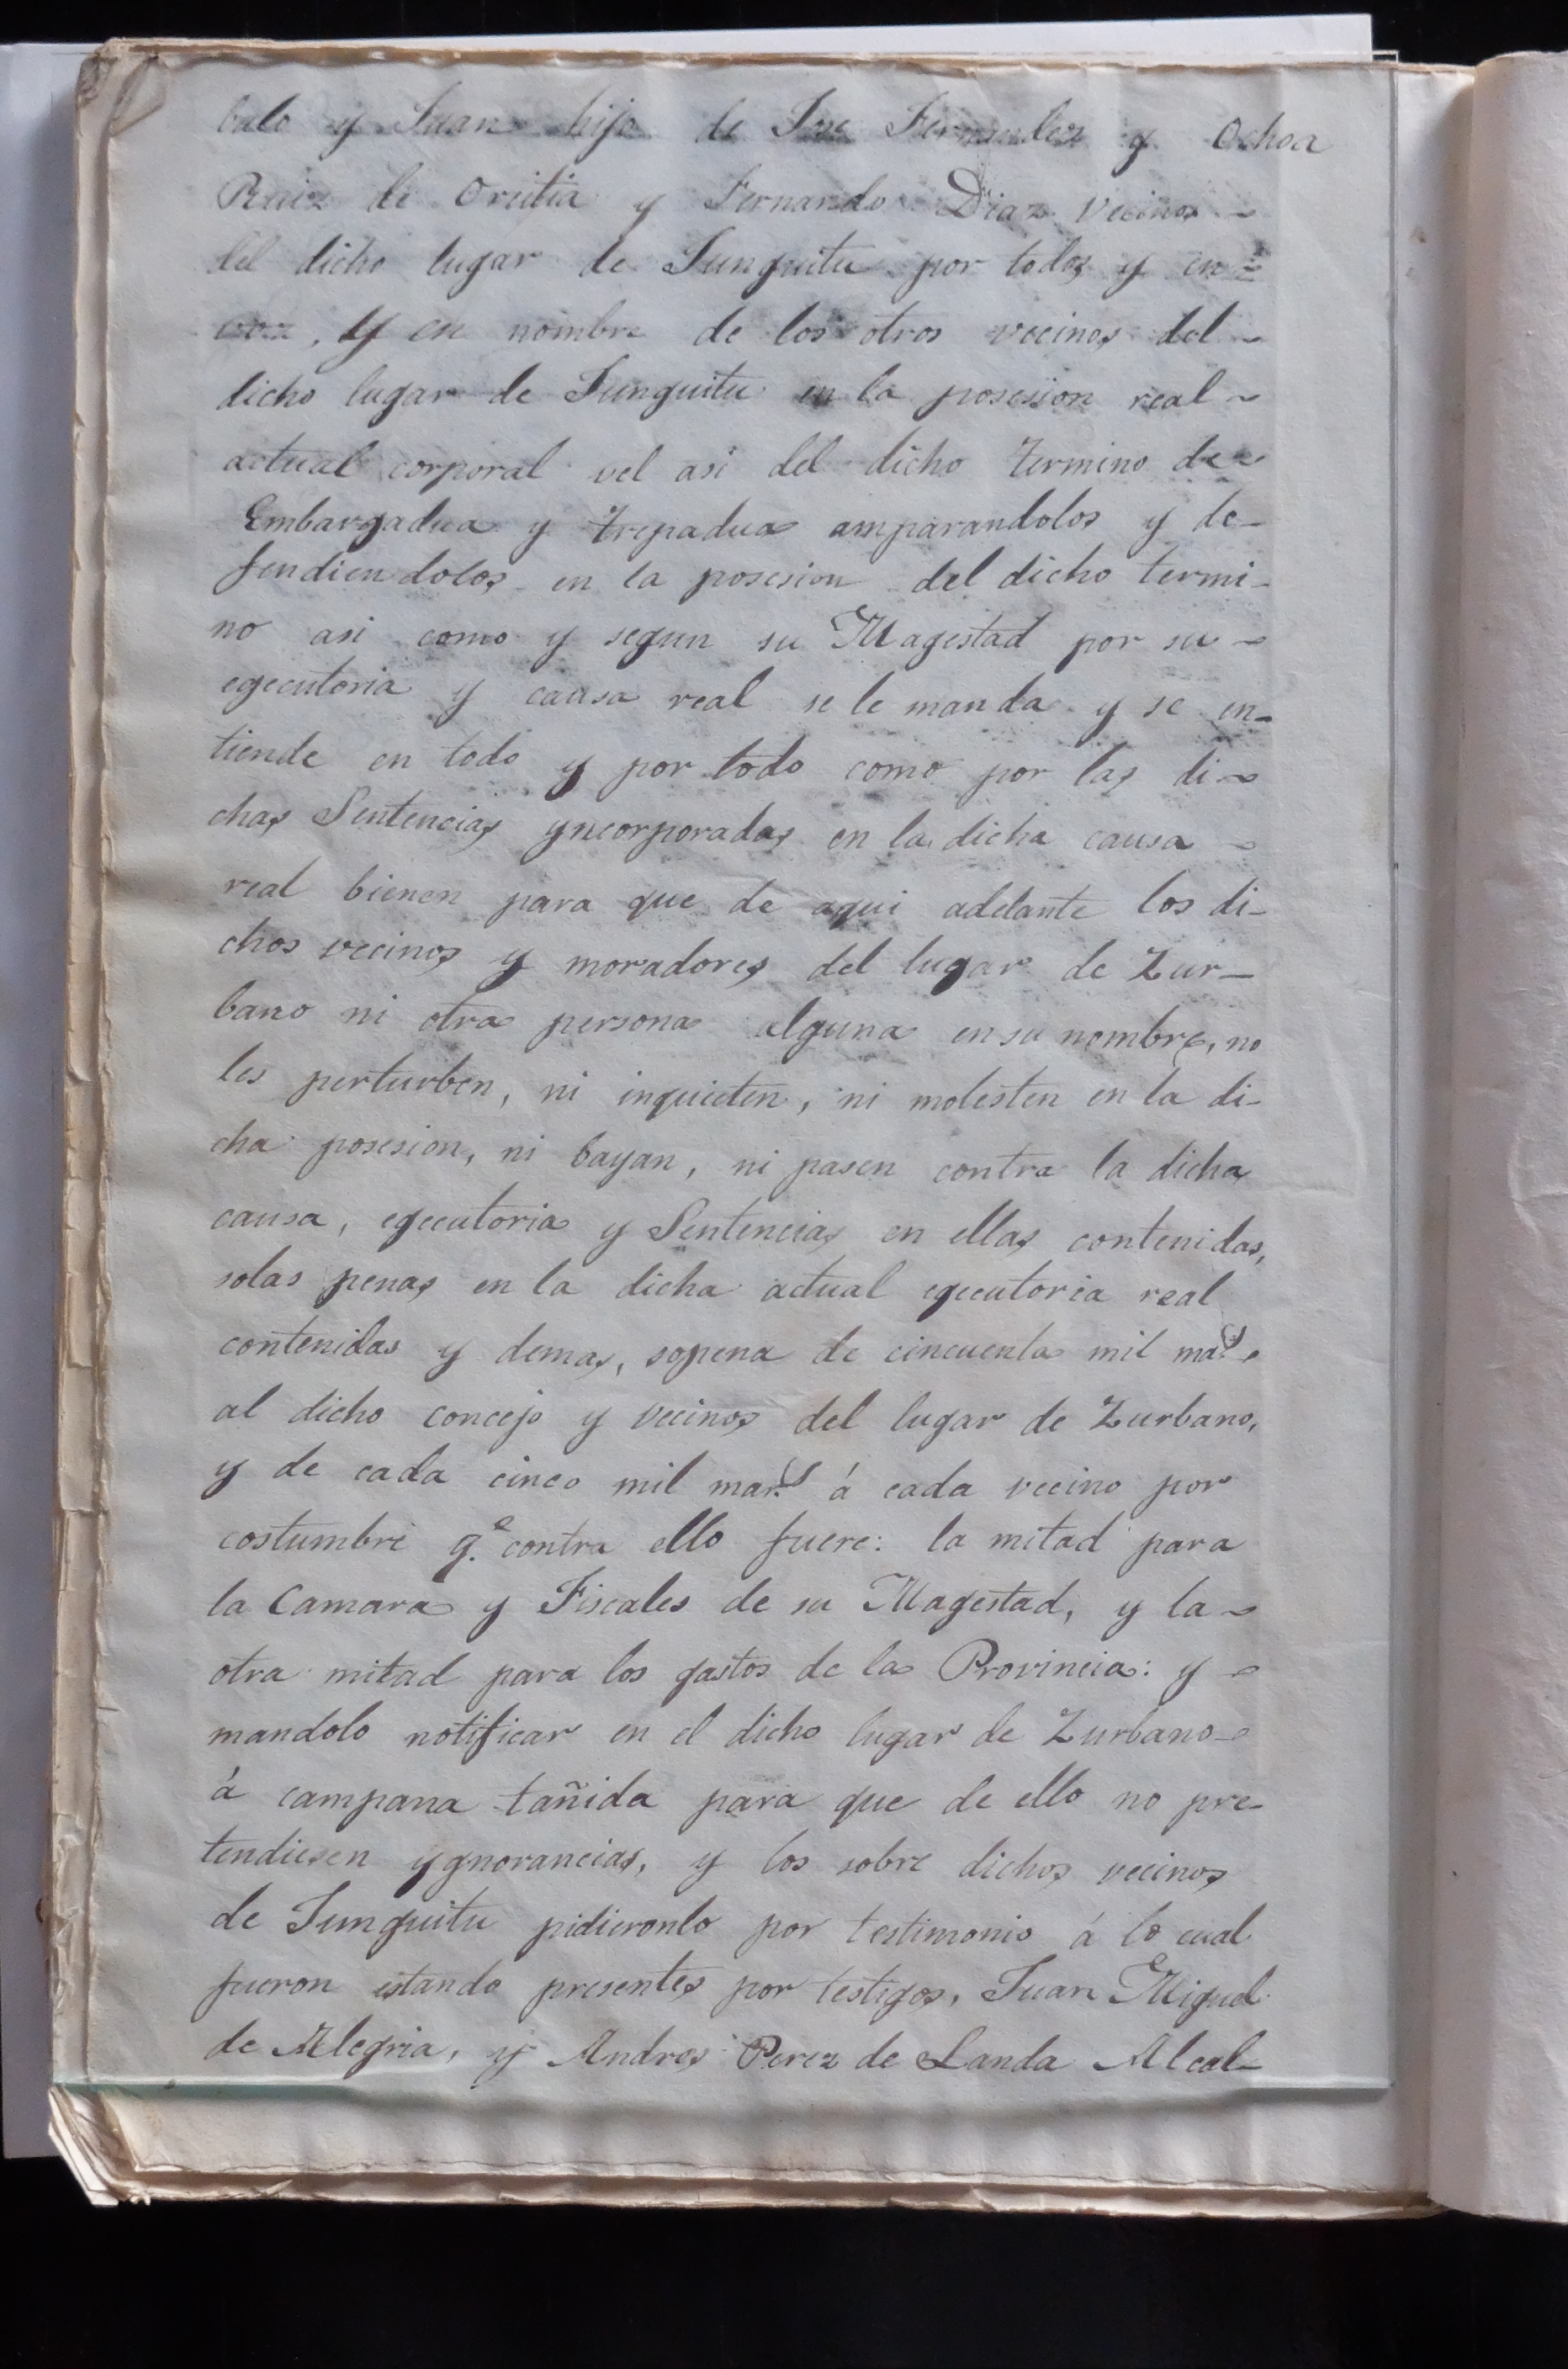 balo y Juan hijo de Jose Fernandez y Ochoa
Ruiz de Oreitia y Fernando Diaz vecinos ~
del dicho lugar de Junguitu por todos y en =
voz, y en nombre de los otros vecinos del ~
dicho lugar de Junguitu en la posesion real ~
actual corporal vel asi del dicho termino de ~
Embargadua y trepadua amparandolos y de-
fendiendolos en la posesion del dicho termi-
no asi como y segun su Magestad por su ~
egecutoria y causa real se le manda y se en-
tiende en todo y por todo como por las di ~
chas Sentencias yncorporadas en la dicha causa ~
real bienen para que de aqui adelante los di-
chos vecinos y moradores del lugar de Zur-
bano ni otra persona alguna en su nombre, no
les perturben, ni inquieten, ni molesten en la di-
cha posesion, ni bayan, ni pasen contra la dicha
causa, egecutoria y Sentencias en ellas contenidas,
solas penas en la dicha actual egecutoria real
contenidas y demas, sopena de cincuenta mil mas.
al dicho concejo y vecinos del lugar de Zurbano,
y de cada cinco mil mars. á cada vecino por
costumbre q.e contra ello fuere: la mitad para
la Camara y Fiscales de su Magestad, y la ~
otra mitad para los gastos de la Provincia: y ~
mandolo notificar en el dicho lugar de Zurbano ~
á campana tañida para que de ello no pre-
tendiesen ygnorancias, y los sobre dichos vecinos
de Junguitu pidieronlo por testimonio á lo cual
fueron estando presentes por testigos, Juan Miguel
de Alegria, y Andres Perez de Landa Alcal-